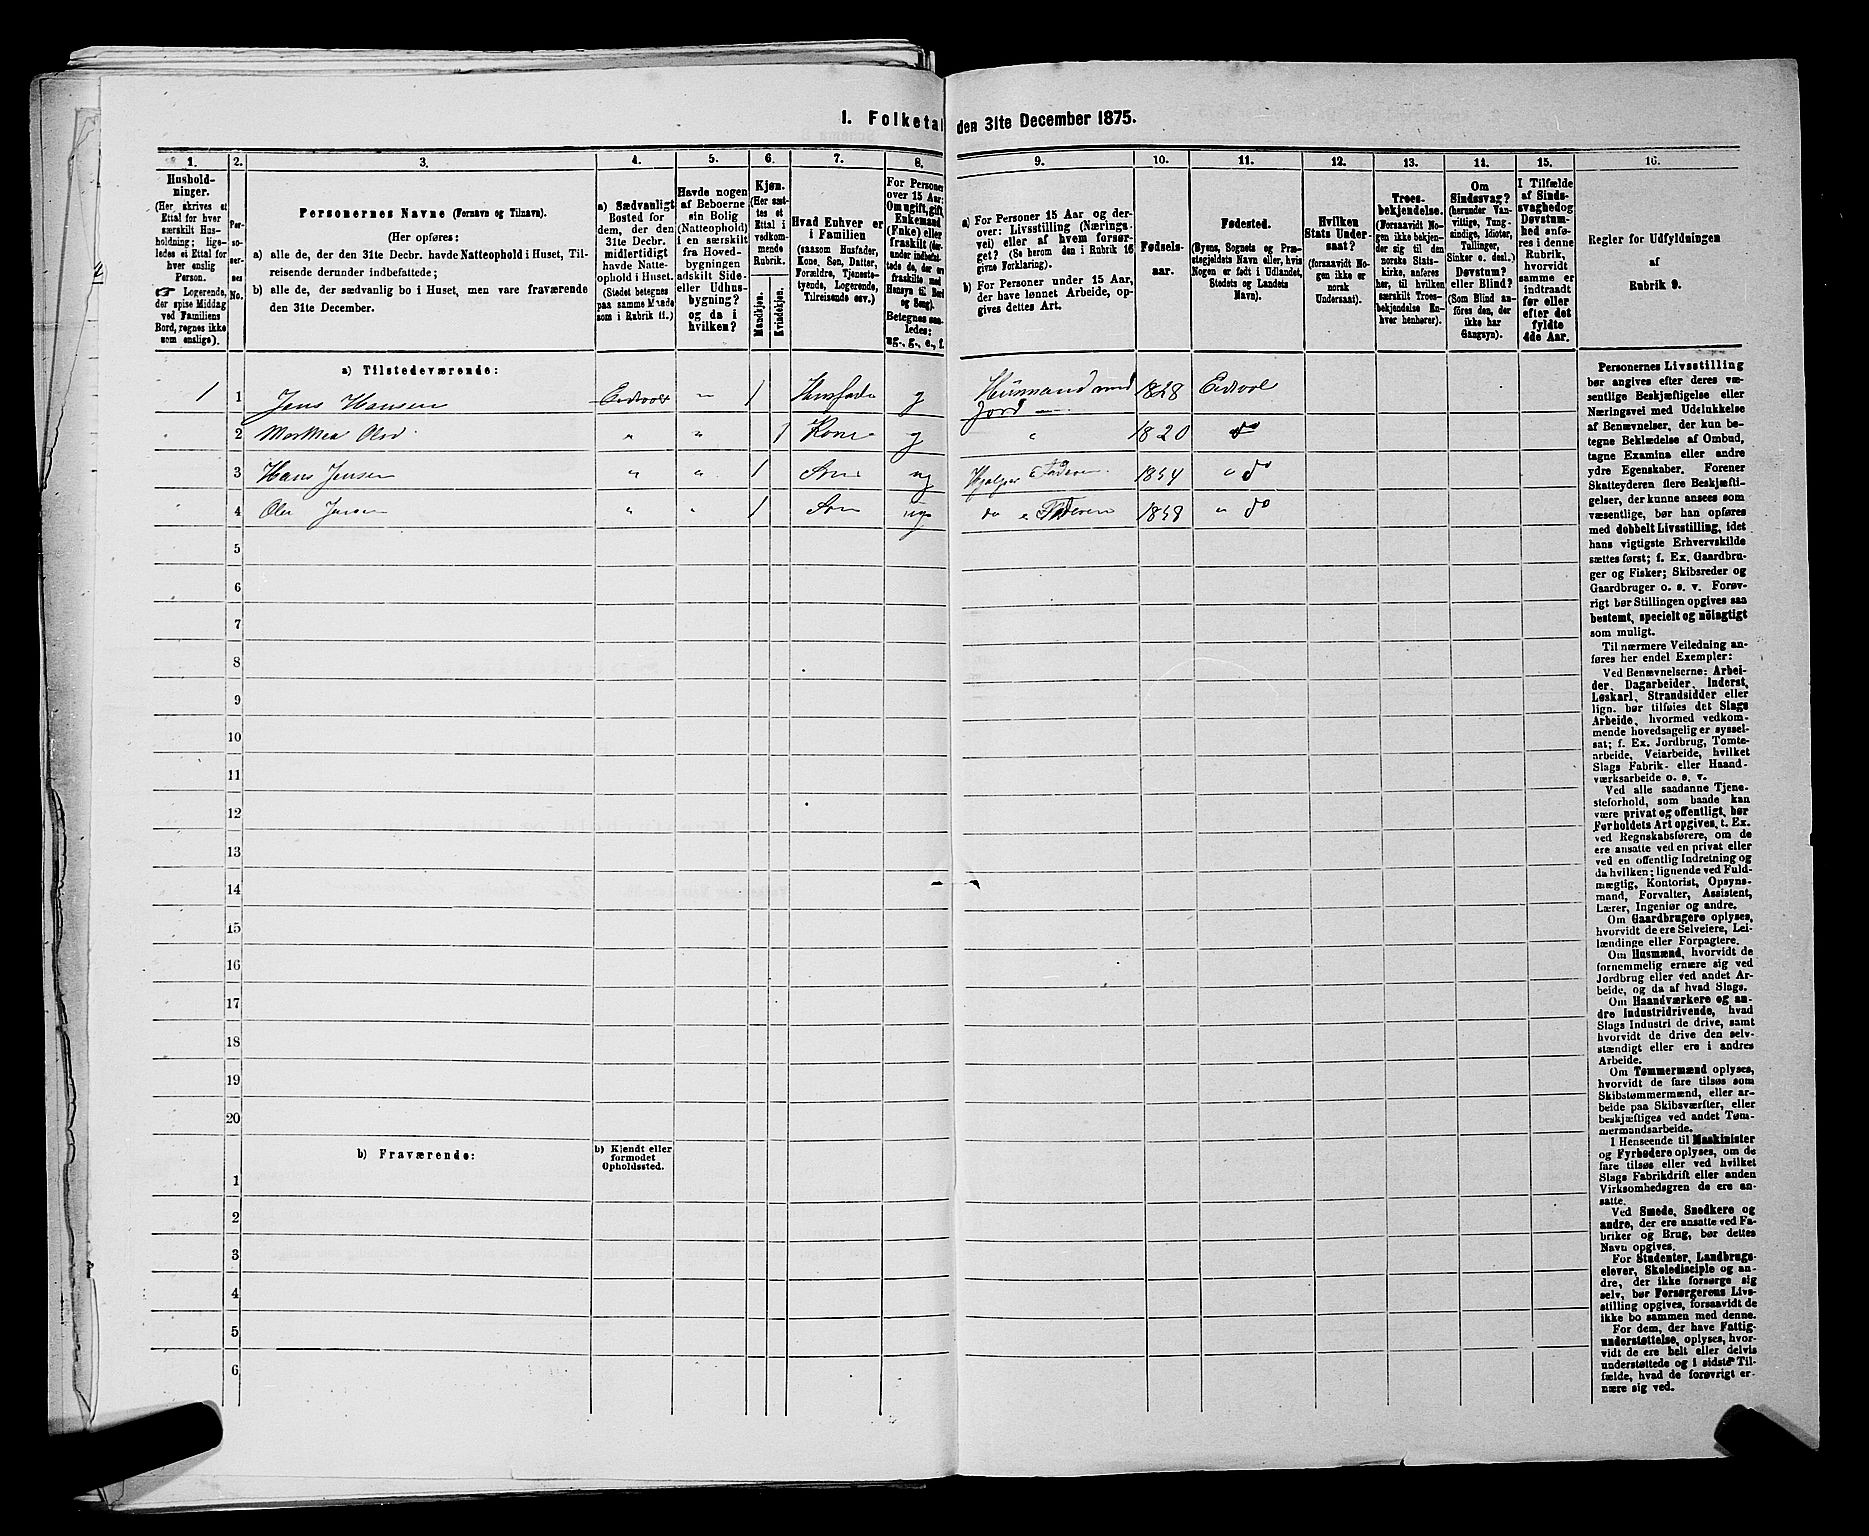 1. Folketal den 31te December 1875.
1. 2. 3. 4. 5. 6. 7. 8. 9. 10. 11. 12. 13. 14. 15. 16.
Hushold-
ninger.
(Her skrives et
Ettal for hver
særskilt Hus-
holdning; lige-
ledes et Ettal for
hver enslig
Person.
☞ Logerende,
der spise Middag
ved Familiens
Bord, regnes ikke
som enslige).
Per-
so-
ner-
nes
No.
Personernes Navne (Fornavn og Tilnavn).
(Her opføres:
a) alle de, der den 31te Decbr. havde Natteophold i Huset, Til-
reisende derunder indbefattede;
b) alle de, der sædvanlig bo i Huset, men vare fraværende
den 31te December.
a) Sædvanligt
Bosted for
dem, der den
31te Decbr.
midlertidigt
havde Natte-
ophold i Huset.
(Stedet betegnes
paa samme Maade
som i Rubrik 11.)
Havde nogen
af Beboerne
sin Bolig
(Natteophold)
i en særskilt
fra Hoved-
bygningen
adskilt Side-
eller Udhus-
bygning?
og da i
hvilken?
Kjøn.
(Her sæt-
tes et
Ettal i
vedkom-
mende
Rubrik.
Mandkjøn.
Kvindekjøn.
Hvad Enhver er
i Familien
(saasom Husfader,
Kone, Søn, Datter,
Forældre, Tjeneste-
tyende, Logerende,
Tilreisende osv.)
For Personer
over 15 Aar:
Om ugift, gift,
Enkemand
(Enke) eller
fraskilt (her-
under indbefat-
tede de, der ere
fraskilte med
Hensyn til Bord
og Seng).
Betegnes saa-
ledes:
ug., g., e., f.
a) For Personer 15 Aar og der-
over: Livsstilling (Nærings-
vei) eller af hvem forsør-
get? (Se herom den i Rubrik 16
givne Forklaring).
b) For Personer under 15 Aar,
der have lønnet Arbeide, op-
gives dettes Art.
Fødsels-
aar.
Fødested.
(Byens, Sognets og Præ-
stegjeldets Navn eller, hvis
Nogen er født i Udlandet,
Stedets og Landets
Navn).
Hvilken
Stats Under-
saat?
(forsaavidt No-
gen ikke er
norsk
Undersaat).
Troes-
bekjendelse.
(Forsaavidt No-
gen ikke bekjen-
der sig til den
norske Stats-
kirke, anføres
her, til hvilken
særskilt Troes-
bekjendelse En-
hver henhører).
Om
Sindssvag?
(herunder Van-
vittige, Tung-
sindige, Idioter,
Tullinger,
Sinker o. desl.)
Døvstum?
eller Blind?
(Som Blind an-
føres den, der
ikke har
Gangsyn).
I Tilfælde
af Sinds-
svaghed og
Døvstum-
hed anfø-
res i denne
Rubrik,
hvorvidt
samme er
indtraadt
før eller
efter det
fyldte
4de Aar.
Regler for Udfyldningen
af
Rubrik 9.
a) Tilstedeværende:
1 1 Jens Hansen Eidsvol " 1 Husfader g Husmand med Jord 1828 Eidsvol
2 " " 1 Kone g " 1820 do
3 Hans Jensen " " 1 Søn ug Hjelper Faderen 1854 " do
4 Ole Jensen " " 1 Søn ug do " Faderen 1858 " do
5
6
7
8
9
10
11
12
13
14
15
16
17
18
19
20
b) Fraværende: b) Kjendt eller
formodet
Opholdssted.
1
2
3
4
5
6
Personernes Livsstilling
bør angives efter deres væ-
sentlige Beskjæftigelse eller
Næringsvei med Udelukkelse
af Benævnelser, der kun be-
tegne Beklædelse af Ombud,
tagne Examina eller andre
ydre Egenskaber. Forener
Skatteyderen flere Beskjæfti-
gelser, der kunne ansees som
væsentlige, bør han opføres
med dobbelt Livsstilling, idet
hans vigtigste Erhvervskilde
sættes først; f. Ex. Gaardbru-
ger og Fisker; Skibsreder og
Gaardbruger o. s. v. Forøv-
rigt bør Stillingen opgives saa
bestemt, specielt og nöiagtigt
som muligt.
Til nærmere Veiledning an-
føres her endel Exempler:
Ved Benævnelserne: Arbei-
der, Dagarbeider, Inderst,
Løskarl, Strandsidder eller
lign. bør tilføies det Slags
Arbeide, hvormed vedkom-
mende hovedsagelig er syssel-
sat; f. Ex. Jordbrug, Tomte-
arbeide, Veiarbeide, hvilket
Slags Fabrik- eller Haand-
værksarbeide o. s. v.
Ved alle saadanne Tjene-
steforhold, som baade kan
være privat og offentligt, bør
Forholdets Art opgives, t. Ex.
ved Regnskabsførere, om de
ere ansatte ved en privat eller
ved en offentlig Indretning og
da hvilken; lignende ved Fuld-
mægtig, Kontorist, Opsyns-
mand, Forvalter, Assistent,
Lærer, Ingeniør og andre.
Om Gaardbrugere oplyses,
hvorvidt de ere Selveiere, Lei-
lændinge eller Forpagtere.
Om Husmænd, hvorvidt de
fornemmelig ernære sig ved
Jordbrug eller ved andet Ar-
beide, og da af hvad Slags.
Om Haandværkere og an-
dre Industridrivende, hvad
Slags Industri de drive, samt
hvorvidt de drive den selv-
stændigt eller ere i andres
Arbeide.
Om Tømmermænd oplyses,
hvorvidt de fare tilsøs som
Skibstømmermænd, eller ar-
beide paa Skibsværfter, eller
beskjæftiges ved andet Tøm-
mermandsarbeide.
I Henseende til Maskinister
og Fyrbødere oplyses, om de
fare tilsøs eller ved hvilket
Slags Fabrikdrift eller anden
Virksomhedsgren de ere an-
satte.
Ved Smede, Snedkere og
andre, der ere ansatte ved Fa-
briker og Brug, bør dettes
Navn opgives.
For Studenter, Landbrugs-
elever, Skoledisciple og an-
dre, der ikke forsørge sig
selv, bør Forsørgerens Livs-
stilling opgives, forsaavidt de
ikke bo sammen med denne.
For dem, der have Fattig-
understøttelse, oplyses, hvor-
vidt de ere helt eller delvis
understøttede og i sidste Til-
fælde, hvad de forøvrigt er-
nære sig ved.